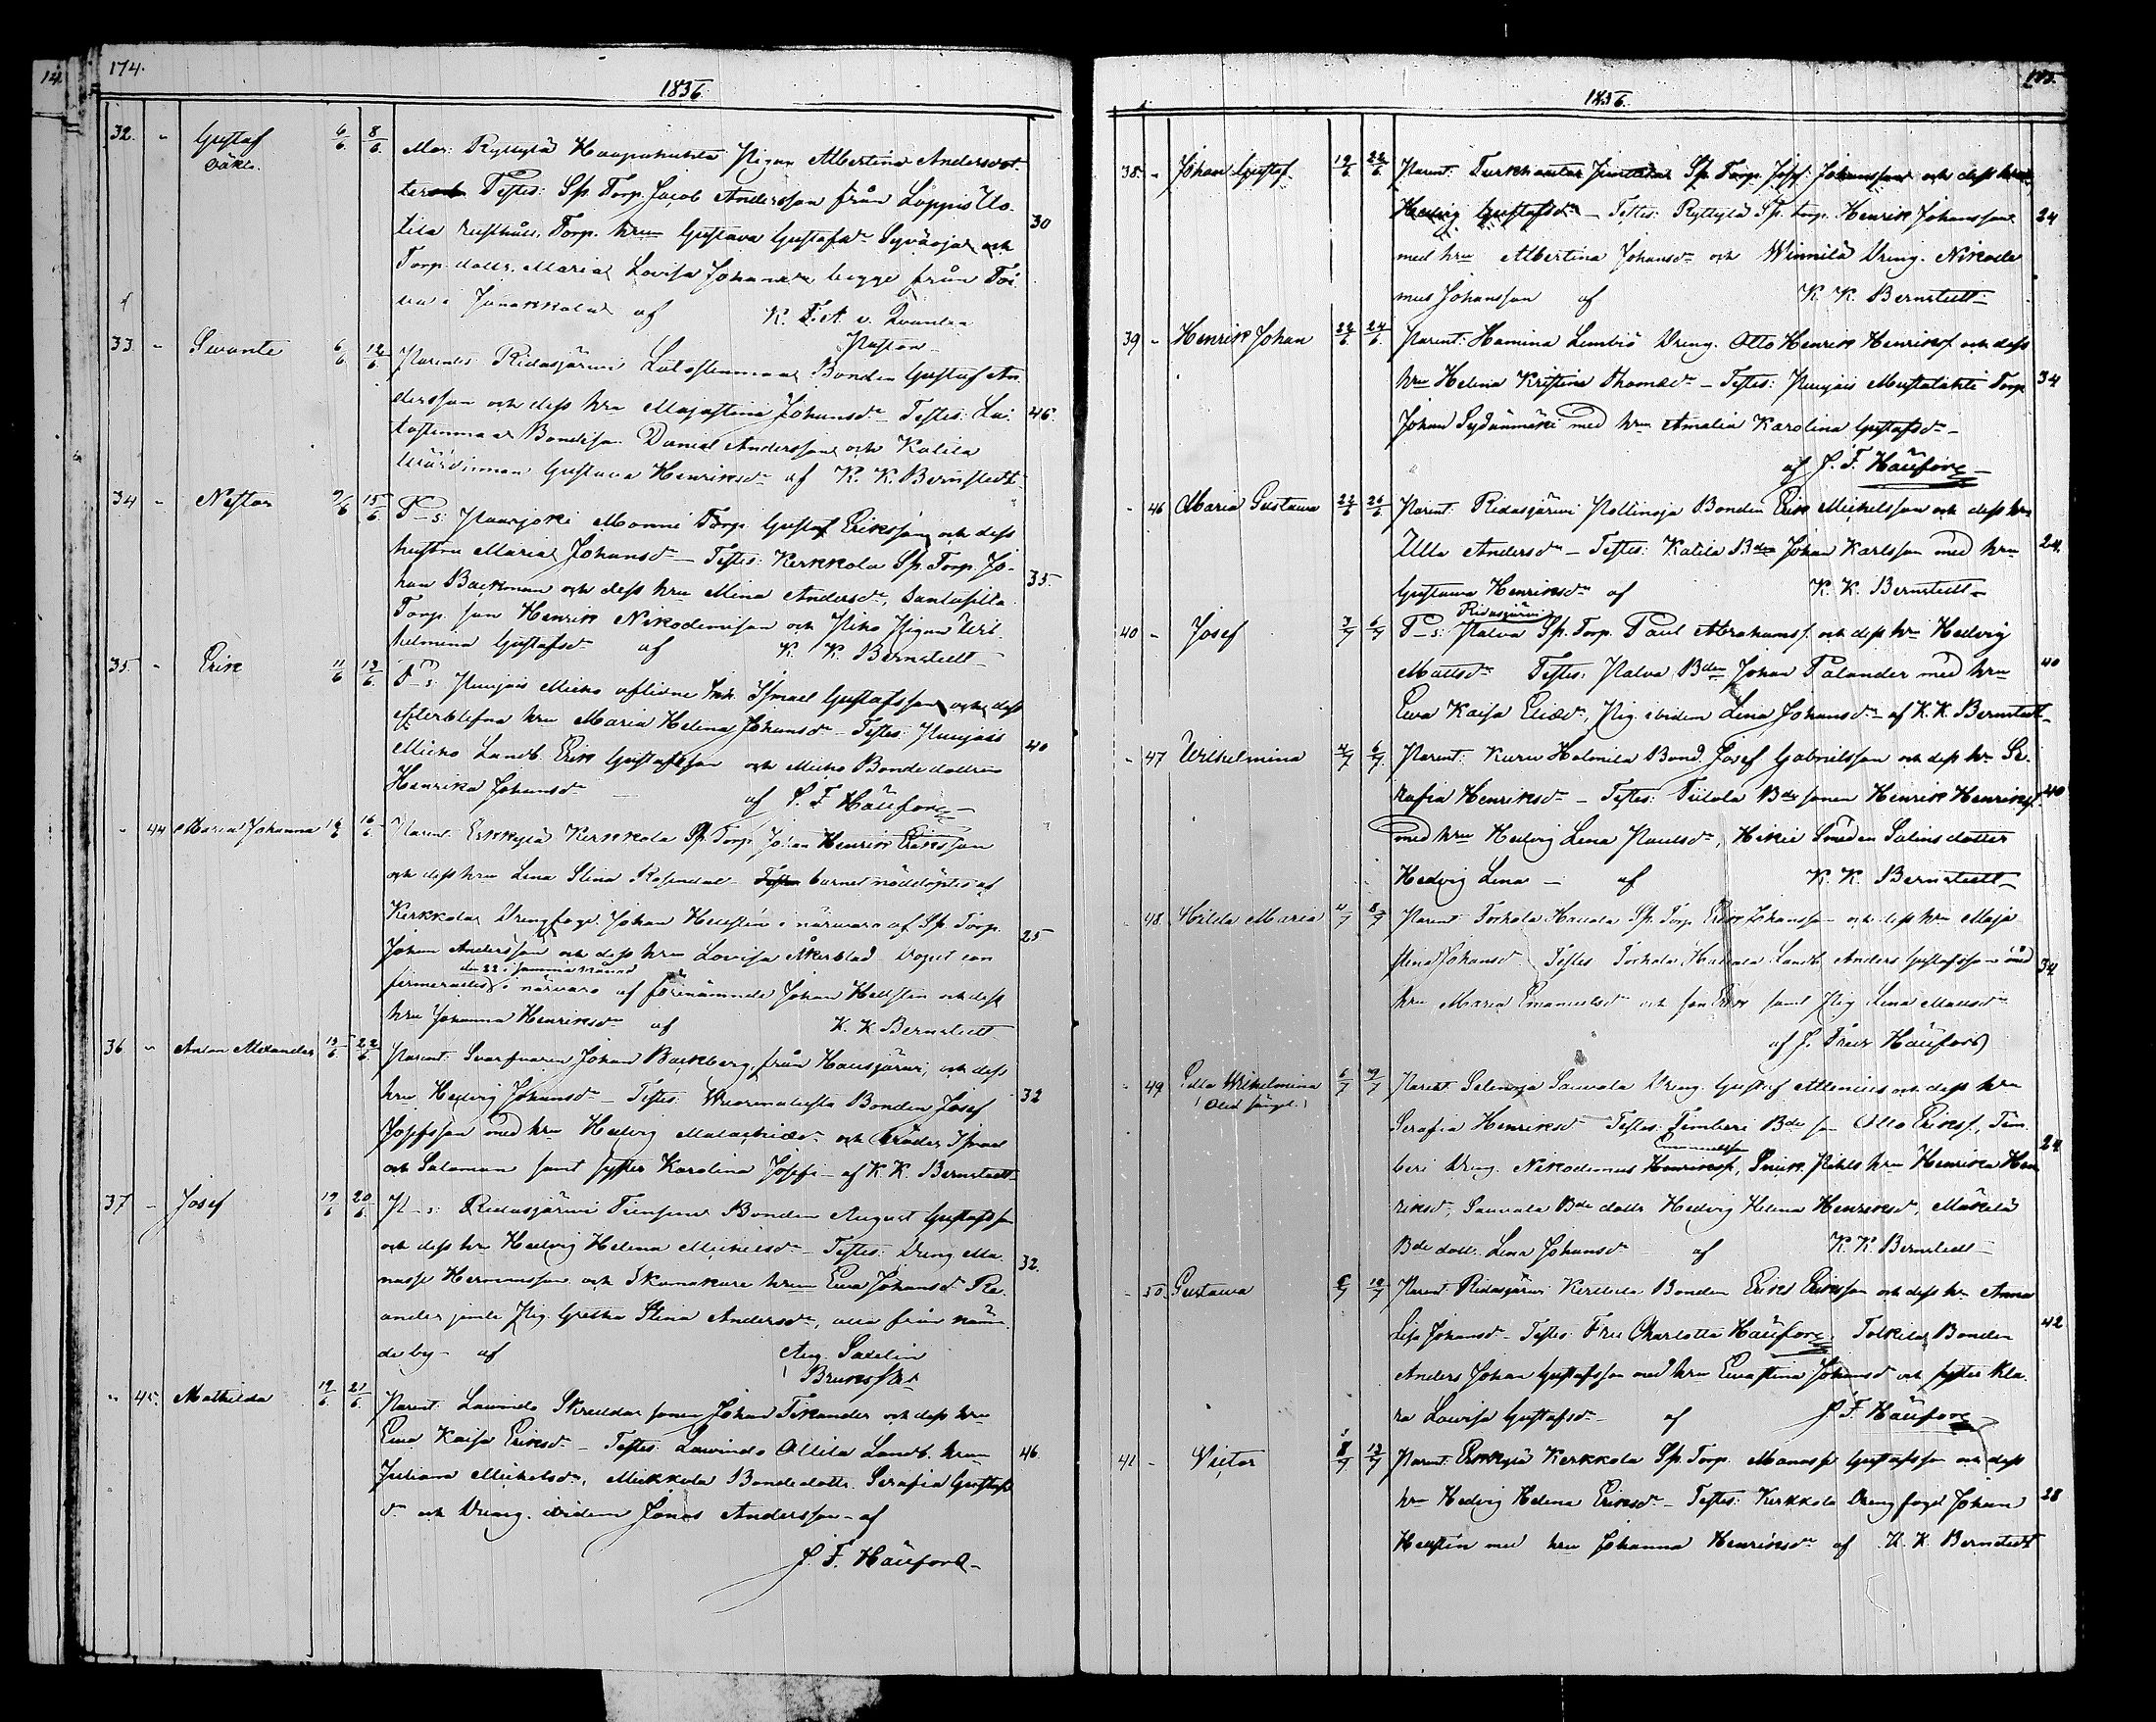 14
174.
1856.
32. - Gustaf 6/6 8/6 Mor: Ryttylä Haapahuhta Pigan Albertina Andersdot
Oäkta. ter Testes: Sp. Torp. Jacob Andersson från Loppis
30
tila rusthåll, Torp. hrun Gustava Gustafsdr och
Torp. dottr. Maria Lovisa begge från
i Janakkala af K. F. A. v.
Pastor
33. - Svante 6/6 12/6 Parentes: Ridasjärvi Bonden Gustaf An
dersson och dess hru Majastina Johansdr Testes: 46.
Bondeson Daniel Andersson och Katila
Värdinnan Gustava Henriksdr af K. K. Bernstedt
34 - Nestor 9/6 15/6 P-s: Puujoki Torp. Gustaf Eriksson och dess
hustru Maria Johansdr - Testes: Kerkkola Sp. Torp. Jo-
han Backman och dess hru Mina Andersdr, 35.
Torp. son Henrik Nikodemisson och Pigan Wil
helmina Gustafsdr af K. K. Bernstedt
35. - Erik 11/6 13/6 P-s: Puujais Micko aflidne Inh. Ismael Gustafsson och dess
efterblefna hru Maria Helena Johansdr - Testes: Puujais
Micko Landb. Erik Gustafsson och Micko Bondedottren 40
Henrika Johansdr af J. F. Häufors
- 44 Maria Johanna 16/6 Parent. Erkkylä Kerkkola Sp. Torp. Johan Henrik Eriksson
och dess hru Lena Stina Rosendal - barnet nöddöptes af
Kerkkola Drengfogd. Johan Hellstén i närvaro af Sp. Torp. 25
Johan Andersson och dess hru Lovisa Åkerblad Dopet con
den 22 i samma månad
firmerades i närvaro af förenämnde Johan Hellsten och dess
hru Johanna Henriksdr af K. K. Bernstedt
36 - Anton Alexander 19/6 22/6 Parent: Svarfvaren Johan Backberg från Hausjärvi, och dess
hru Hedvig Johansdr - Testes: Bonden Josef 32
Josefsson med hru Hedvig och bröder Ismael
och Saloman samt syster Karolina af K. K. Bernstedt
37 - Josef 19/6 20/6 P-s: Ridasjärvi Bonden August Gustafsson
och dess hru Hedvig Helena Michelsdr - Testes: Dreng Ma
nasse Hermansson och Skomakare hrun Eva Johansdr 32.
ander jemte Pig. Gretha Stina Andersdr, alla från näm
de by - af Aug. Sadelin
- 45. Mathilda 19/6 21/6 Parent. Lavinto Skreddar sonen Johan och dess hru
Eva Kaisa Eriksdr - Testes: Lavinto Ollila Landb. hrun 46
Juliana Michelsdr, Mickkola Bondedottr. Serafia Gustafs
dr och Dreng. ibidem Jonas Andersson - af
J. F. Häufors -
1856.
175.
38. - Johan Gustaf 19/6 22/6 Parent: Sp. Torp. Josef Johansson och dess hru
Hedvig Gustafsdr - Testes: Ryttylä Sp. torp. Henrik Johansson 24
med hru Albertina Johansdr och Winnilä Dreng. Nikode
mus Johansson af K. K. Bernstedt -
39 - Henrik Johan 22/6 24/6 Parent: Hamina Lembiö Dreng. Otto Henrik Henrikss. och dess
hru Helena Kristina Thomædr - Testes: Puujais Mustalahti Torp. 34
Johan Sydänmäki med hru Amalia Karolina Gustafsdr -
af J. F. Häufors -
- 46 Maria Gustava 22/6 26/6 Parent: Ridasjärvi Pollinoja Bonden Erik Michelsson och dess hru
Ulla Andersdr - Testes: Katila Bden Johan Karlsson med hru 24.
Gustava Henriksdr af K. K. Bernstedt -
Ridasjärvi
40 - Josef 3/7 6/7 P-s: Palva Sp. Torp. Paul Abrahamss. och dess hru Hedvig
Mattsdr Testes: Palva Bden Johan Palander med hru 40
Eva Kaisa Eliædr, Pig. ibidem Lena Johansdr - af K. K. Bernstedt -
- 47 Wilhelmina 4/7 6/7 Parent: Kuru Holmila Bond. Josef Gabrielsson och dess hru Se-
rafia Henriksdr - Testes: Tiitola Bde sonen Henrik Henrikss. 40
med hru Hedvig Lena Paulsdr, Hikiä Smeden Salins dotter
Hedvig Lena - af K. K. Bernstedt -
48. Hilda Maria 4/7 8/7 Parent: Torhola Sp. Torp. Erik Johansson och dess hru Maja
Stina Johansdr. Testes Torhola Landb. Anders Gustafsson med 34
hru Maria Emanuelsdr och son Erik samt Pig. Lena Mattsdr
af J. Fredr Häufors
49 Edla Wilhelmina 5/7 9/7 Parent: Selänoja Sauvala Dreng. Gustaf Allenius och dess hru
Serafia Henriksdr Testes: Timberi Bde son Otto Erikss., Tim-
Emanuelsson 24
beri Dreng. Nikodemus Henrikss., hru Henrika Hen
riksdr, Sauvala Bde dottr Hedvig Helena Henriksdr, Mäkelä
Bde dott. Lena Johansdr af K. K. Bernstedt -
- 50. Gustava 6/7 10/7 Parent: Ridasjärvi Kerttula Bonden Erik Eriksson och dess hru Anna
Lisa Johansdr - Testes: Fru Charlotta Häufors, Tolkila Bonden 42
Anders Johan Gustafsson med hru Evastina Johansdr och syster Kla
ra Lovisa Gustafsdr - af J. F. Häufors
41 - Victor 8/7 13/7 Parent: Erkkylä Kerkkola Sp. Torp. Manasse Gustafsson och dess
hru Hedvig Helena Eriksdr - Testes: Kerkkola Drengfogd Johan 28
Hellstin med hru Johanna Henriksdr af K. K. Bernstedt